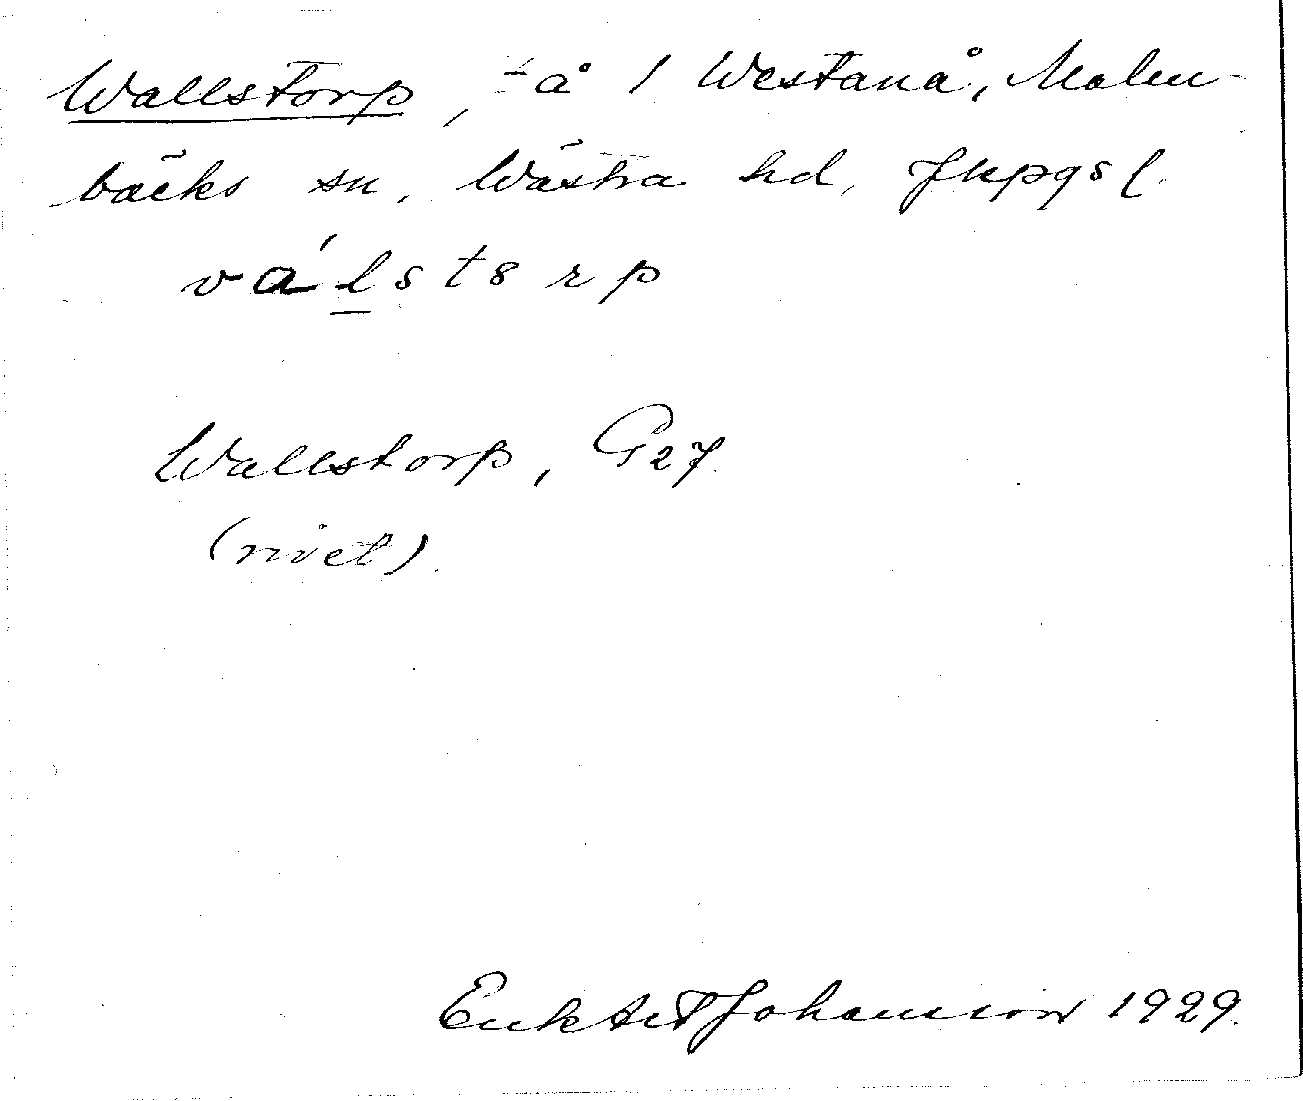 Wallstorp, tå / Westanå, Malm-
bäcks sn, Wästra hd, Jkpgs l.
vál̲st8rp
Wallstorp, G27
(rivet).
Johansson 1929.